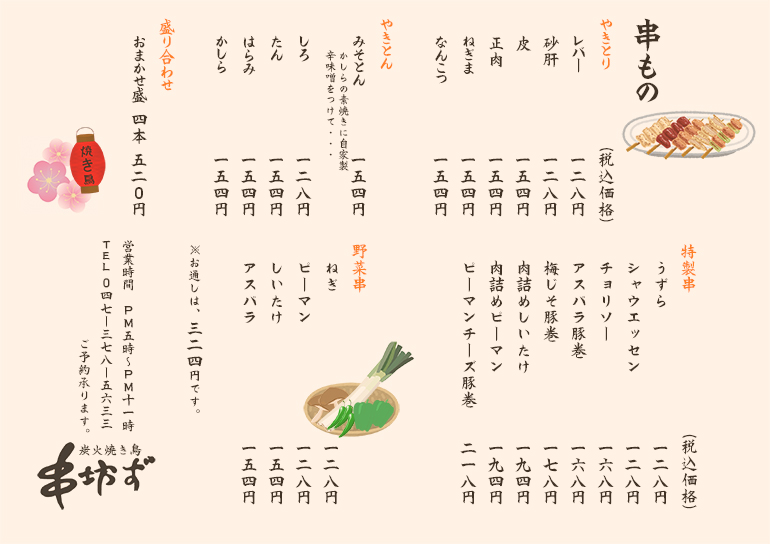 串もの
(税込価格)
やきとり
レバー 一二八円
砂肝 一二八円
皮 一五四円
正肉 一五四円
ねぎま 一五四円
なんこつ 一五四円
やきとん
みそとん 一五四円
かしらの素焼きに自家製
辛味噌をつけて・・・
しろ 一二八円
たん 一五四円
はらみ 一五四円
かしら 一五四円
盛り合わせ
おまかせ盛 四本 五二〇円
焼き鳥
(税込価格)
特製串
うずら 一二八円
シャウエッセン 一二八円
チョリソー 一六八円
アスパラ豚巻 一六八円
梅じそ豚巻 一七八円
肉詰めしいたけ 一九四円
肉詰めピーマン 一九四円
ピーマンチーズ豚巻 二一八円
野菜串
ねぎ 一二八円
ピーマン 一二八円
しいたけ 一五四円
アスパラ 一五四円
※お通しは、三二四円です。
営業時間 PM五時〜PM十一時
TEL 〇四七ー三七八ー五六三三
ご予約承ります。
炭火焼き鳥
串坊ず